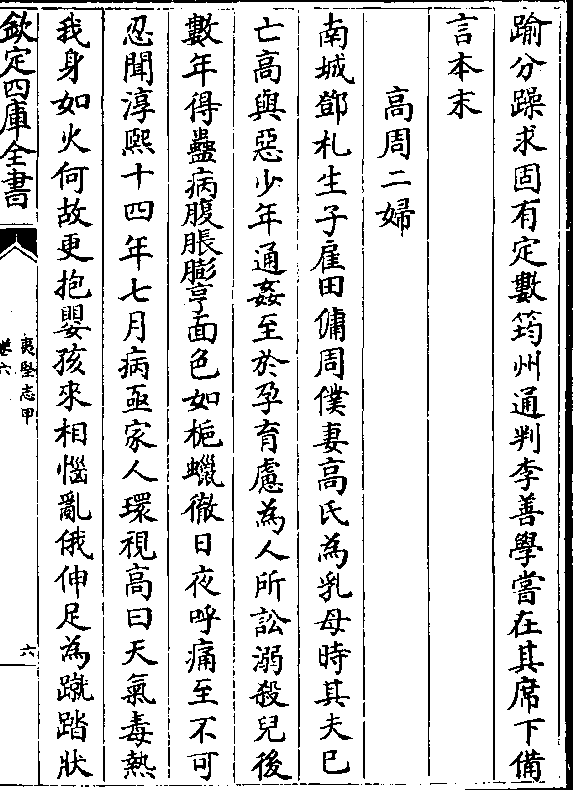 踰分躁求固有定數筠州通判李善學嘗在其席下備
言本末
高周二婦
南城鄧札生子雇田傭周僕妻高氏為乳母時其夫已
亡高與惡少年通姦至於孕育慮為人所訟溺殺兒後
數年得蠱病腹脹膨亨面色如梔蠟徹日夜呼痛至不可
忍聞淳熙十四年七月病亟家人環視高曰天氣毒熱
我身如火何故更抱嬰孩來相惱亂俄伸足為蹴踏狀
欽定四庫全書
夷堅志甲
卷六
六